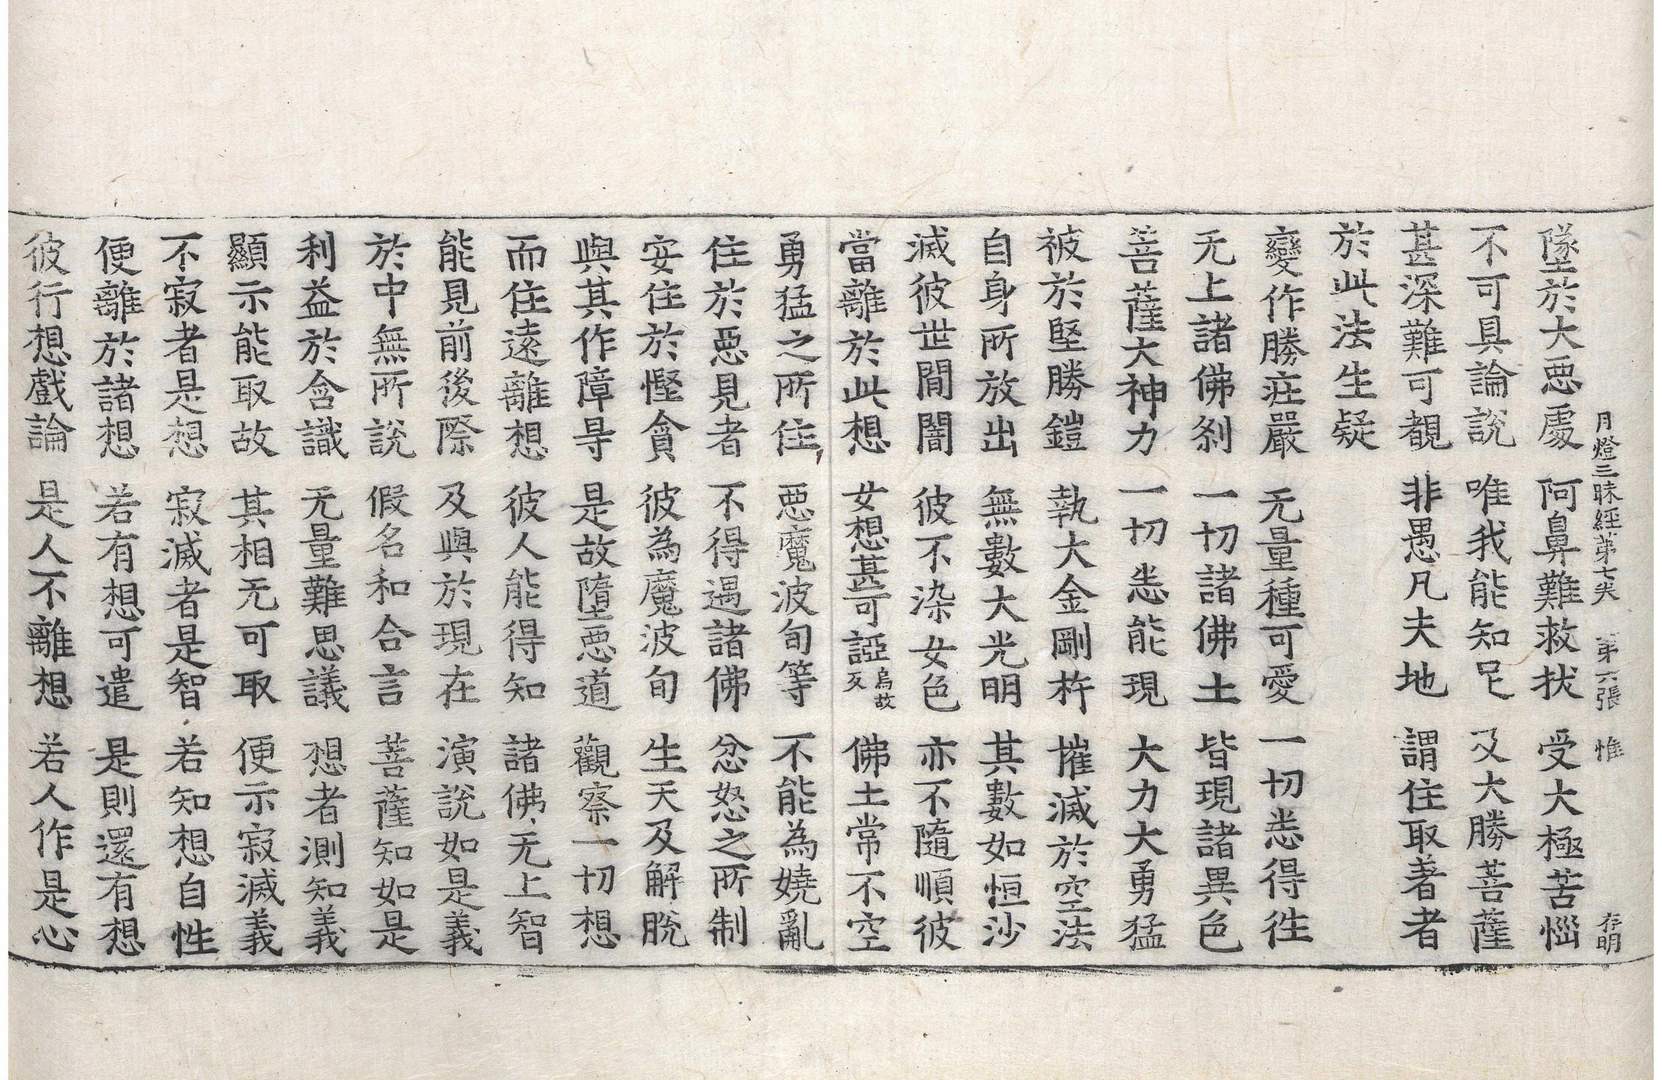 月燈三昧經第七 第六張 惟 存明
墜於大惡處 阿鼻難救抜 受大極苦惱
不可具論說 唯我能知足 又大勝菩薩
甚深難可覩 非愚凡夫地 謂住取著者
於此法生疑
變作勝莊嚴 无量種可愛 一切悉得徃
无上諸佛刹 一切諸佛土 皆現諸異色
菩薩大神力 一切悉能現 大力大勇猛
被於堅勝鎧 執大金剛杵 摧滅於空法
自身所放出 無數大光明 其數如恒沙
滅彼世間闇 彼不染女色 亦不隨順彼
當離於此想 女想甚可誣烏故反 佛土常不空
勇猛之所住 惡魔波旬等 不能為嬈亂
住於惡見者 不得遇諸佛 忿怒之所制
安住於慳貪 彼為魔波旬 生天及解脫
與其作障㝵 是故墮惡道 觀察一切想
而住遠離想 彼人能得知 諸佛无上智
能見前後際 及與於現在 演說如是義
於中無所說 假名和合言 菩薩知如是
利益於含識 无量難思議 想者測知義
顯示能取故 其相无可取 便示寂滅義
不寂者是想 寂滅者是智 若知想自性
便離於諸想 若有想可遣 是則還有想
彼行想戲論 是人不離想 若人作是心